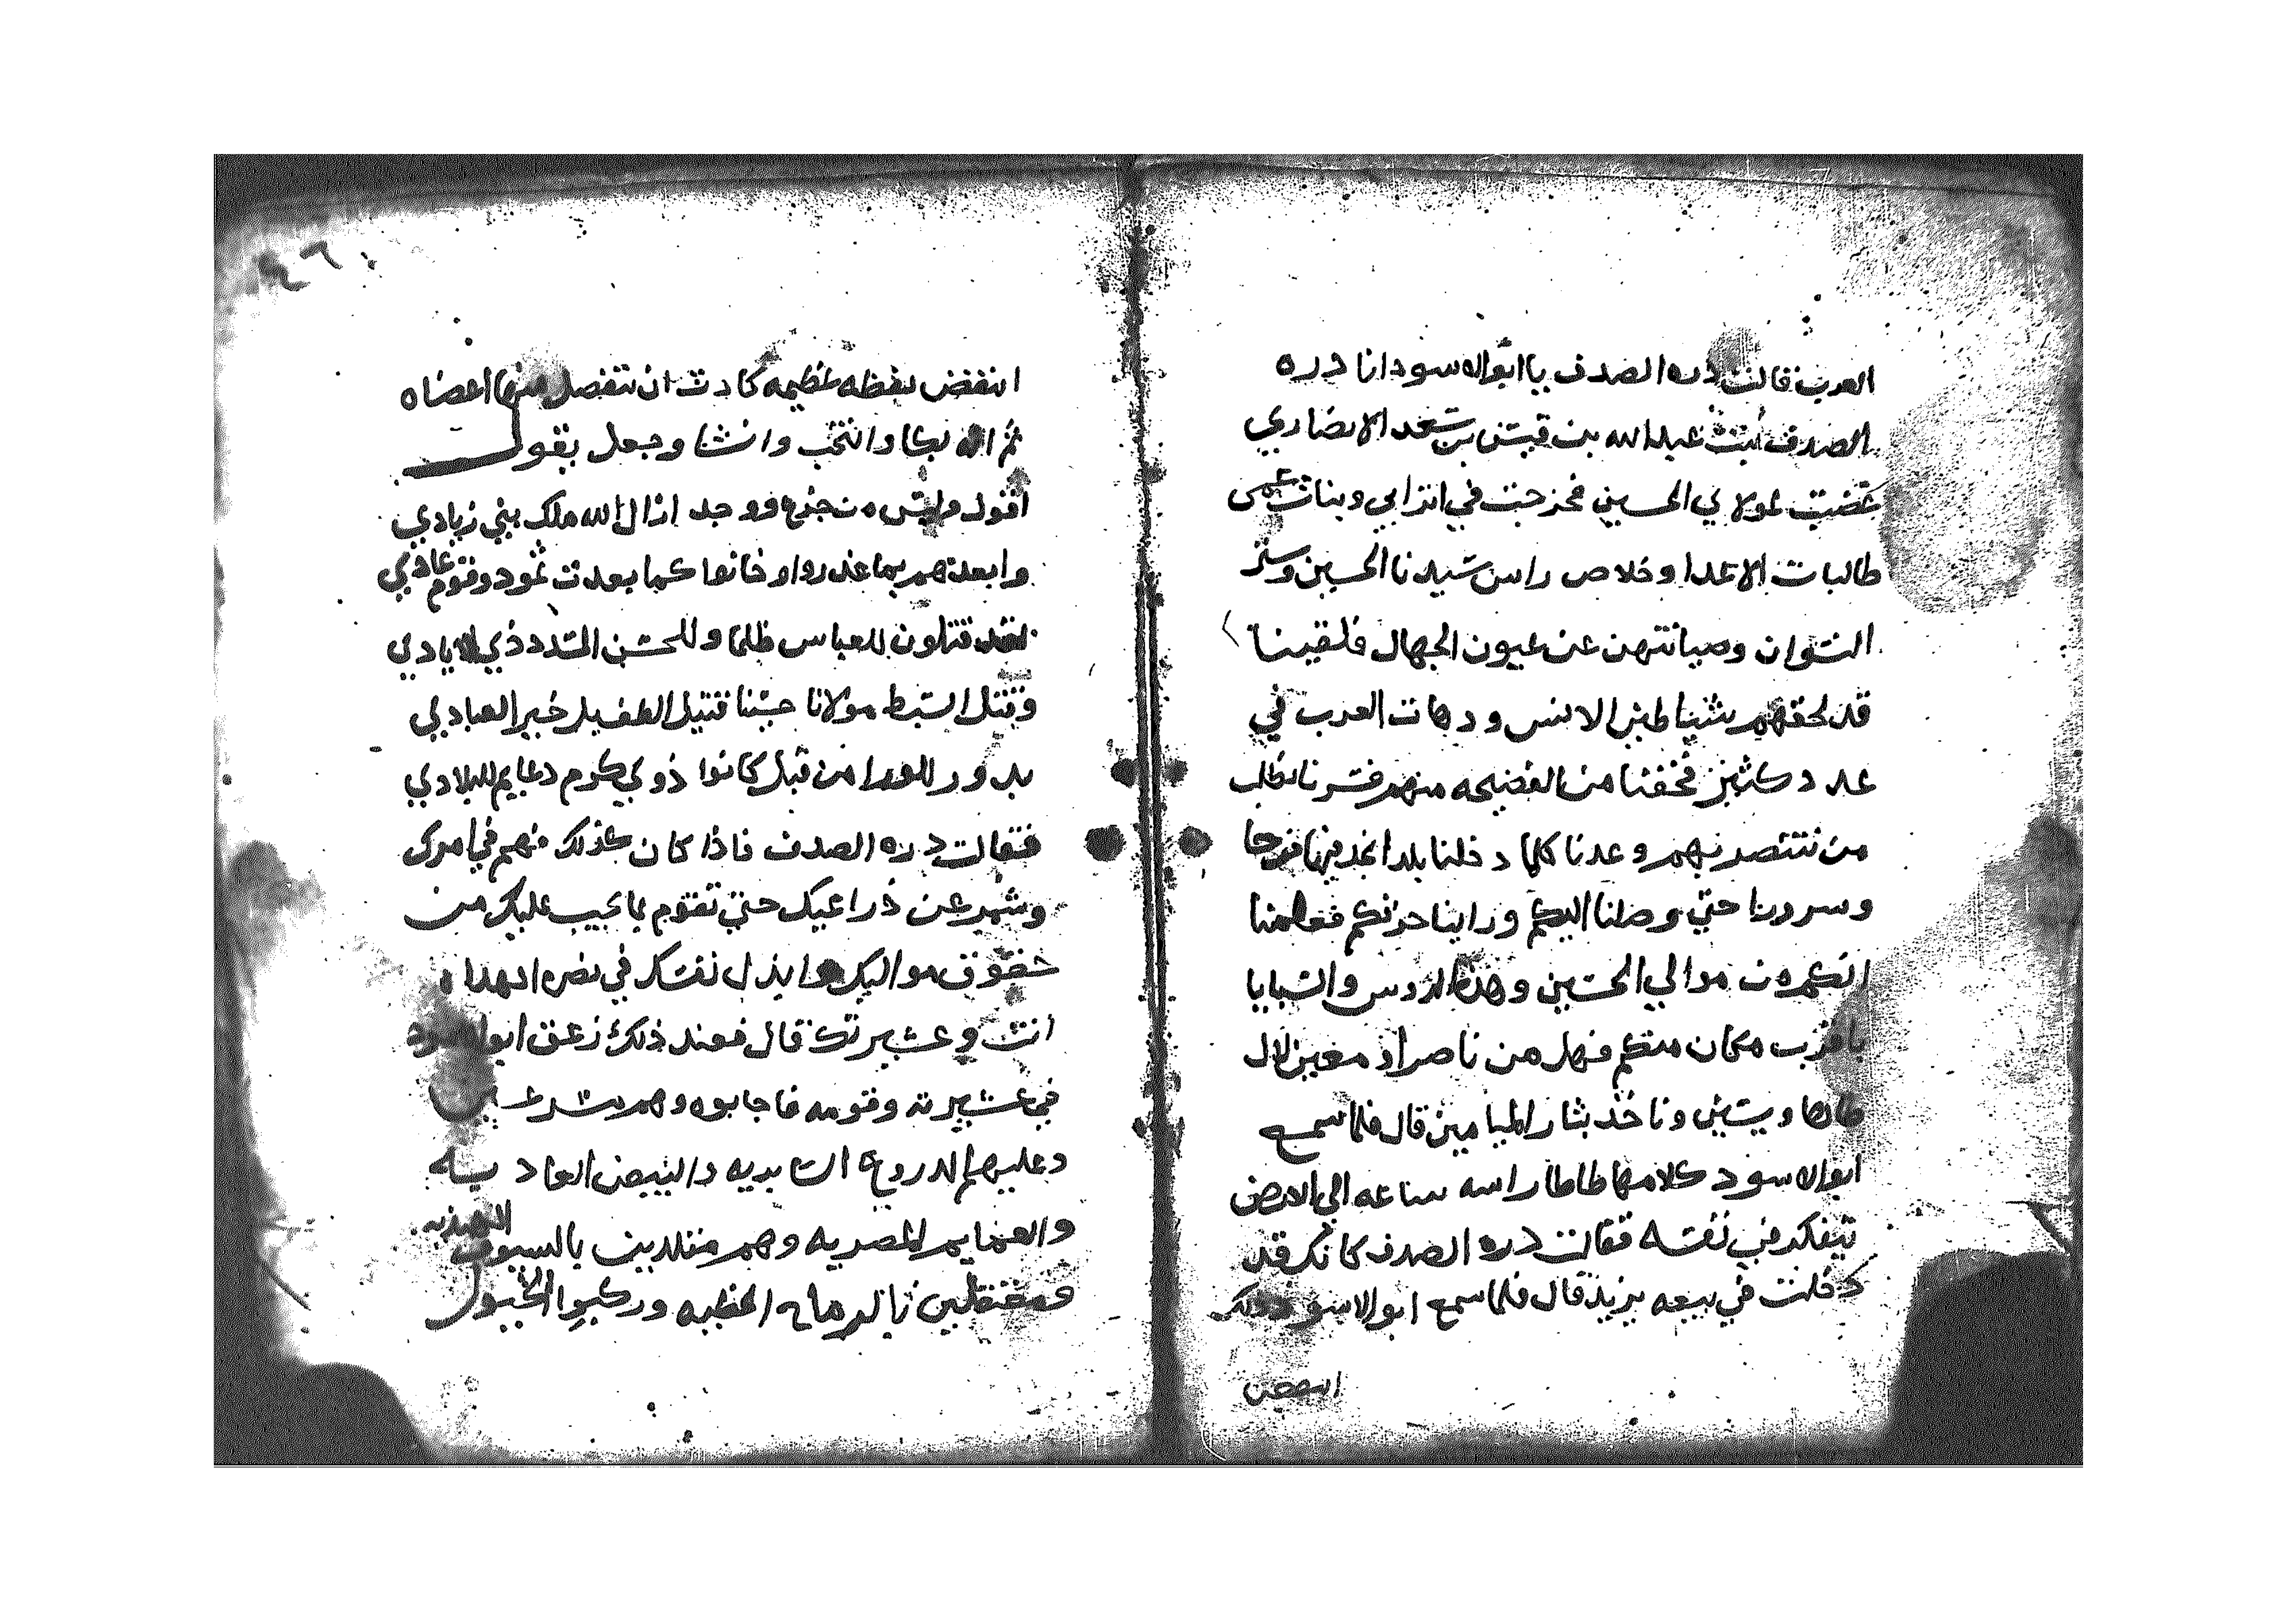 العرب فقالت دره الصدف يا ابو الاسود انا دره
الصدف بنت عبدالله بن قيس بن سعد الانصاري
غضبت لمولاي الحسين فخرجت في اترابي وبنات عمي
طالبات الاعدا وخلاص راس سيدنا الحسين وستر
النسوان وصيانتهن عن عيون الجهال فلقينا
قد لحقهم شياطين الانس ودهات العرب في
عدد كثير فخفنا من الفضيحه منهم فسرنا نطلب
من ننتصر بهم وعدنا كلما دخلنا بلدا نجد فيها فرحا
وسرورنا حتي وصلنا اليكم وراينا حزنكم فعلمنا
انكم من موالي الحسين وهذه الروس والسبايا
باقرب مكان منكم فهل من ناصر او معين لال
طاها ويسين وناخذ بثار الميامين قال فلما سمع
ابو الاسود كلامها طاطا راسه ساعه الي الارض
يتفكر في نفسه فقالت دره الصدف كانك قد
دخلت في بيعه يزيد قال فلما سمع ابو الاسود ذلك
انتفض
انتفض نفظه عظيمه كادت ان تنفصل منها اعضاه
ثم انه بكا وانتحب وانشا وجعل يقول
اقول وليس من جزع ووجد ازال الله ملك بني زيادي
وابعدهم بما غدروا وخانوا كما بعدت ثمود وقوم عادي
لقد قتلون للعباس ظلما وللحسن المسدد ذي الايادي
وقتل السبط مولانا حسينا قتيل الطف خير العبادي
بدور للورا من قبل كانوا ذوي كرم دعايم للبلادي
فقالت دره الصدف فاذا كان كذلك فهم في امرك
وشمر عن ذراعيك حتي تقوم بما يجب عليك من
حقوق مواليك وابذل نفسك في نصره اولاد
انت وعشيرتك قال فعند ذلك زعق ابو الاسود
في عشيرته وقومه فاجابوه وهم مسرعين
وعليهم الدروع السابريه والبيض العاديه
والعمايم المصريه وهم متقلدين بالسيوف الهنديه
ومعتقلين بالرماح الخطيه وركبوا الخيول